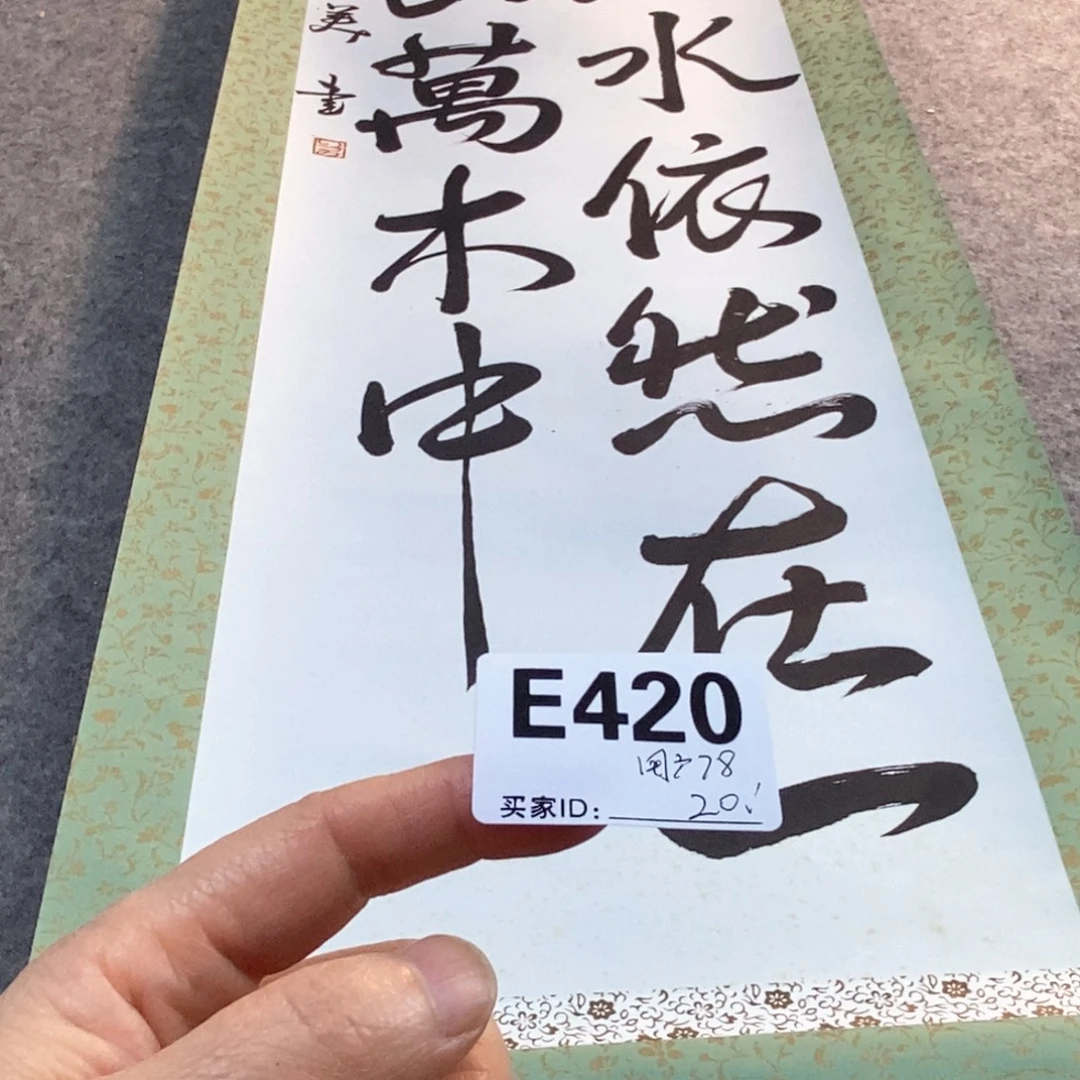 水依然在一
萬木中
美書
E420
用户78
买家ID: 20